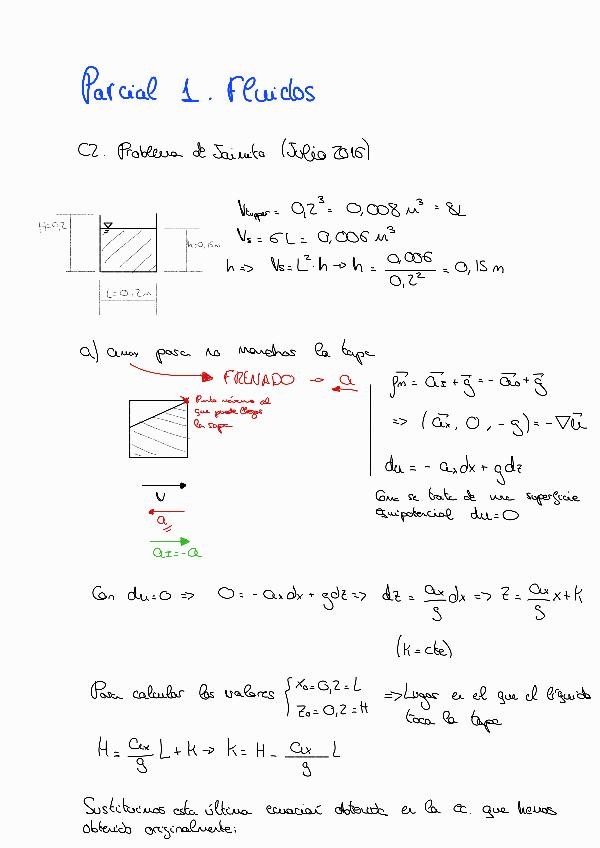 Parcial 1. Fluidos
C2. Problema de Jaimito (Julio 2016)
H=0,2
h=0,15m
L=0,2m
Vtupper = 0,2³ = 0,008 m³ = 8L
Vs = 6L = 0,006 m³
h => Vs = L²·h → h = 0,006 / 0,2² = 0,15 m
a) amax para no manchar la tapa
FRENADO → a
Punto máximo al
que puede llegar
la sopa
V
a
aI=-a
fm = aI + g = -a0 + g
=> (ax, 0, -g) = -∇U
du = -ax dx + g dz
Como se trata de una superficie
equipotencial du=0
Con du=0 => 0 = -ax dx + g dz => dz = ax/g dx => z = ax/g x + K
(K=cte)
Para calcular los valores { x0=0,2=L
z0=0,2=H
=> Lugar en el que el líquido
toca la tapa
H = ax/g L + K → K = H - ax/g L
Sustituimos esta última ecuación obtenida en la ec. que hemos
obtenido originalmente: